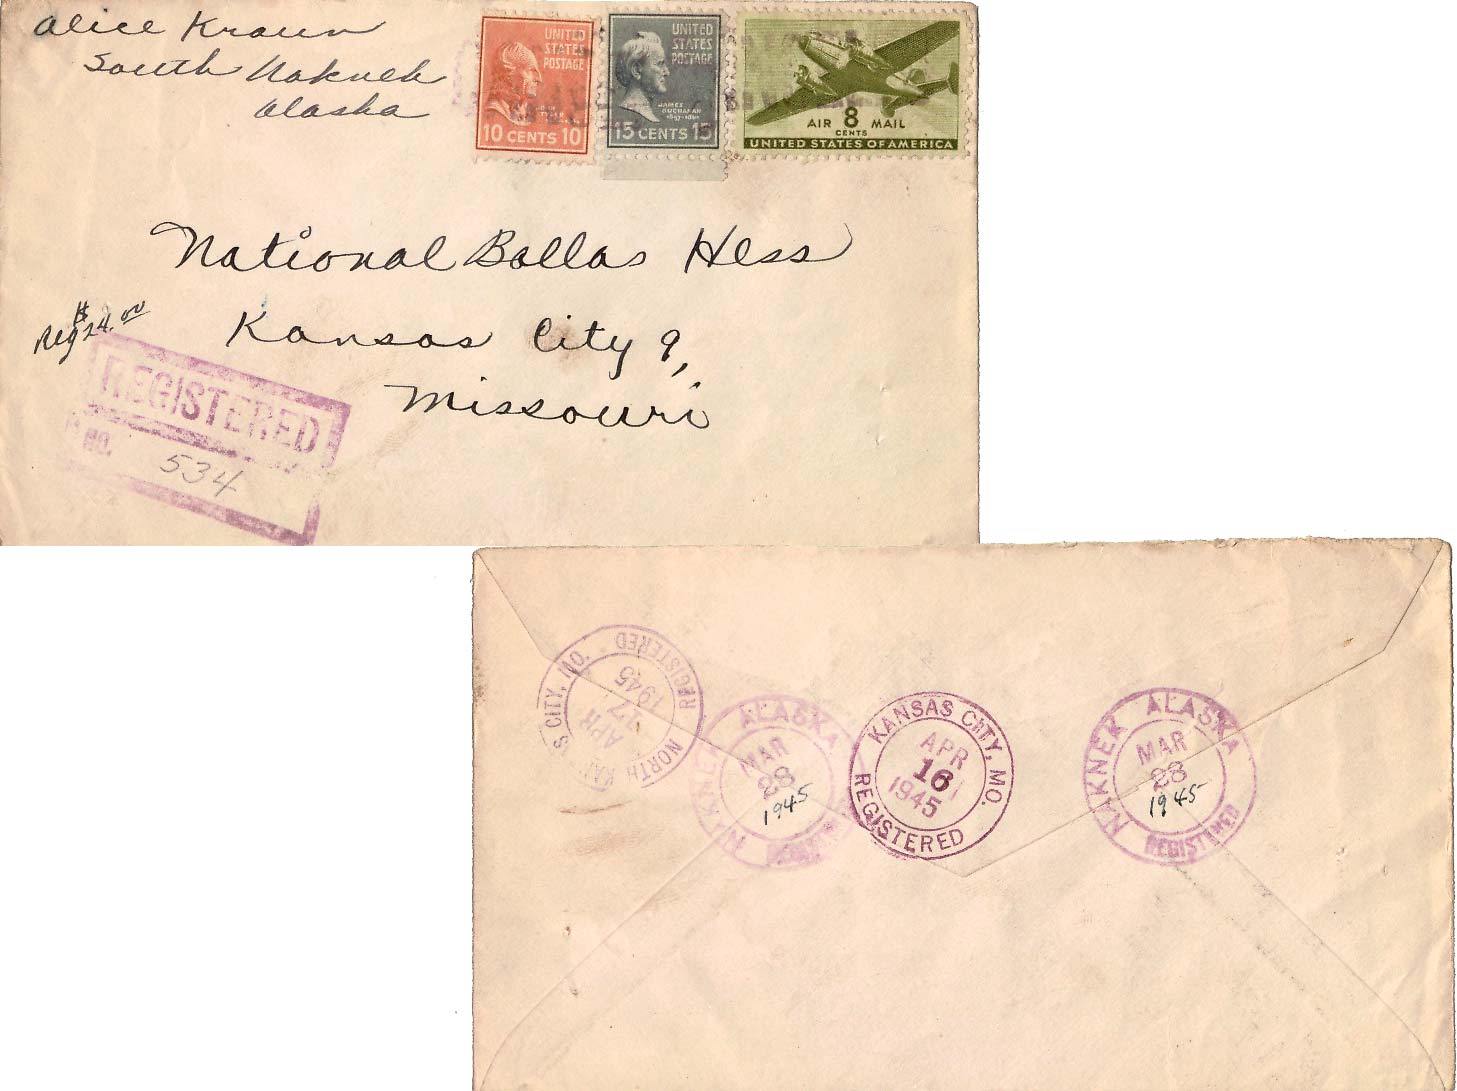 Alice Kraun
South Naknek
Alaska
UNITED
STATES
POSTAGE
10 CENTS 10
UNITED
STATES
POSTAGE
JAMES
BUCHANAN
1857-1861
15 CENTS 15
AIR 8 MAIL
CENTS
UNITED STATES OF AMERICA
National Bellas Hess
Reg $24.00
Kansas City 9,
Missouri
REGISTERED
NO. 534
NORTH KANSAS CITY, MO.
APR
17
1945
REGISTERED
NAKNEK ALASKA
MAR
28
1945
KANSAS CITY, MO.
APR
16
1945
REGISTERED
NAKNEK ALASKA
MAR
28
1945
REGISTERED